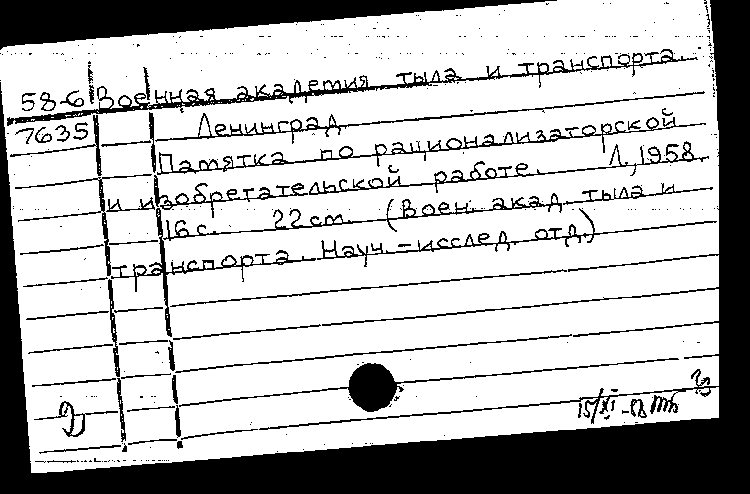 58-6 Военная академия тыла и транспорта.
7635 Ленинград
Памятка по рационализаторской
и изобретательской работе. Л, 1958.
16 с. 22 см. (Воен. акад. тыла и
транспорта. Науч.-исслед. отд.)
15/XI-58